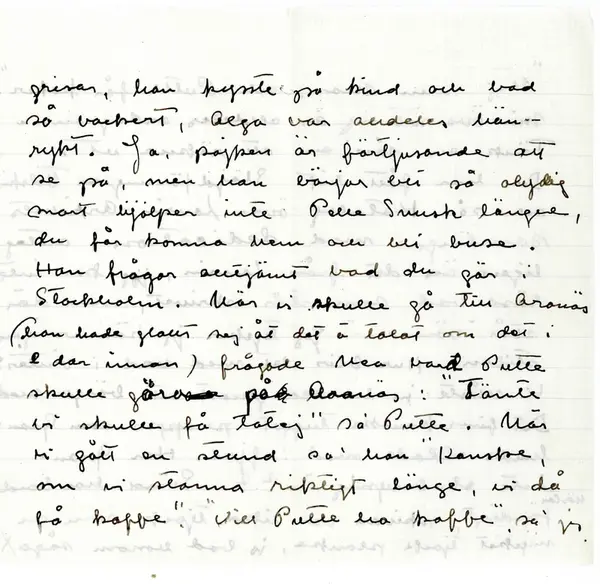 grisar, han kysste på kind och bad
så vackert, Olga var alldeles hän-
ryckt. Ja, pojken är förtjusande att
se på, men han börjar bli så olydig
snart hjälper inte Pelle Snusk längre,
du får komma hem och bli buse.
Han frågar alltjämt vad du gör i
Stockholm. När vi skulle gå till Aranäs
(han hade glatt sej åt det å talat om det i
2 dar innan) frågade Mea vad Putte
skulle göra på Aranäs: "Jänte
vi skulle få tatej" sa' Putte. När
vi gått en stund sa' han "Kanske,
om vi stanna riktigt länge, vi då
få kaffe" "Vill Putte ha kaffe", sa' jg.